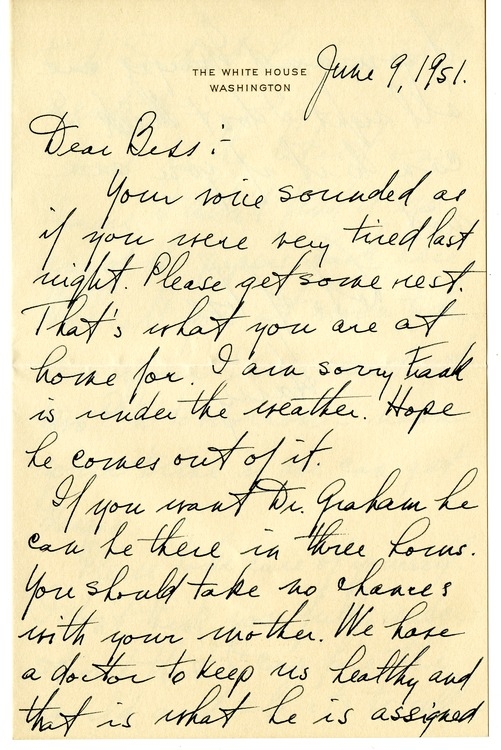 THE WHITE HOUSE
WASHINGTON
June 9, 1951.
Dear Bess:-
Your voice sounded as
if you were very tired last
night. Please get some rest.
That's what you are at
home for. I am sorry Frank
is under the weather. Hope
he comes out of it.
If you want Dr. Graham he
can be there in three hours.
You should take no chances
with your mother. We have
a doctor to keep us healthy and
that is what he is assigned